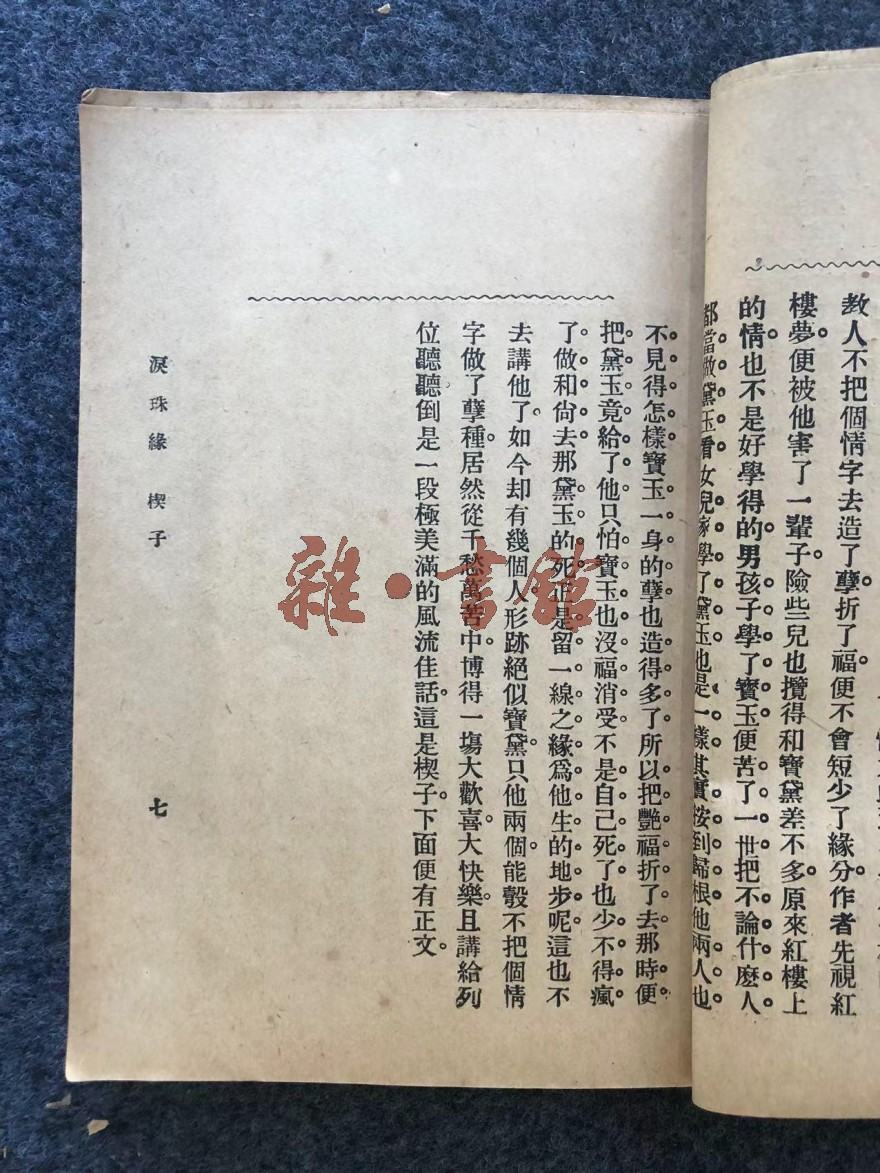 教人不把個情字去造了孽折了福。便不會短少了緣分。作者先視紅
樓夢。便被他害了一輩子。險些兒也攬得和寶黛差不多。原來紅樓上
的情也不是好學得的。男孩子學了寶玉。便苦了一世。把不論什麽人
都當做黛玉看。女兒家學了黛玉。也是一樣。其實按到歸根。他兩人也
不見得怎樣。寶玉一身的孽也造得多了。所以把艷福折了去。那時便
把黛玉竟給了他。只怕寶玉也沒福消受。不是自己死了。也少不得瘋
了做和尙去。那黛玉的死。正是留一線之緣。爲他生的地步呢。這也不
去講他了。如今却有幾個人。形跡絕似寶黛。只他兩個。能彀不把個情
字做了孽種。居然從千愁萬苦中。博得一塲大歡喜。大快樂。且講給列
位聽聽。倒是一段極美滿的風流佳話。這是楔子。下面便有正文。
淚珠緣 楔子 七
雜·書館